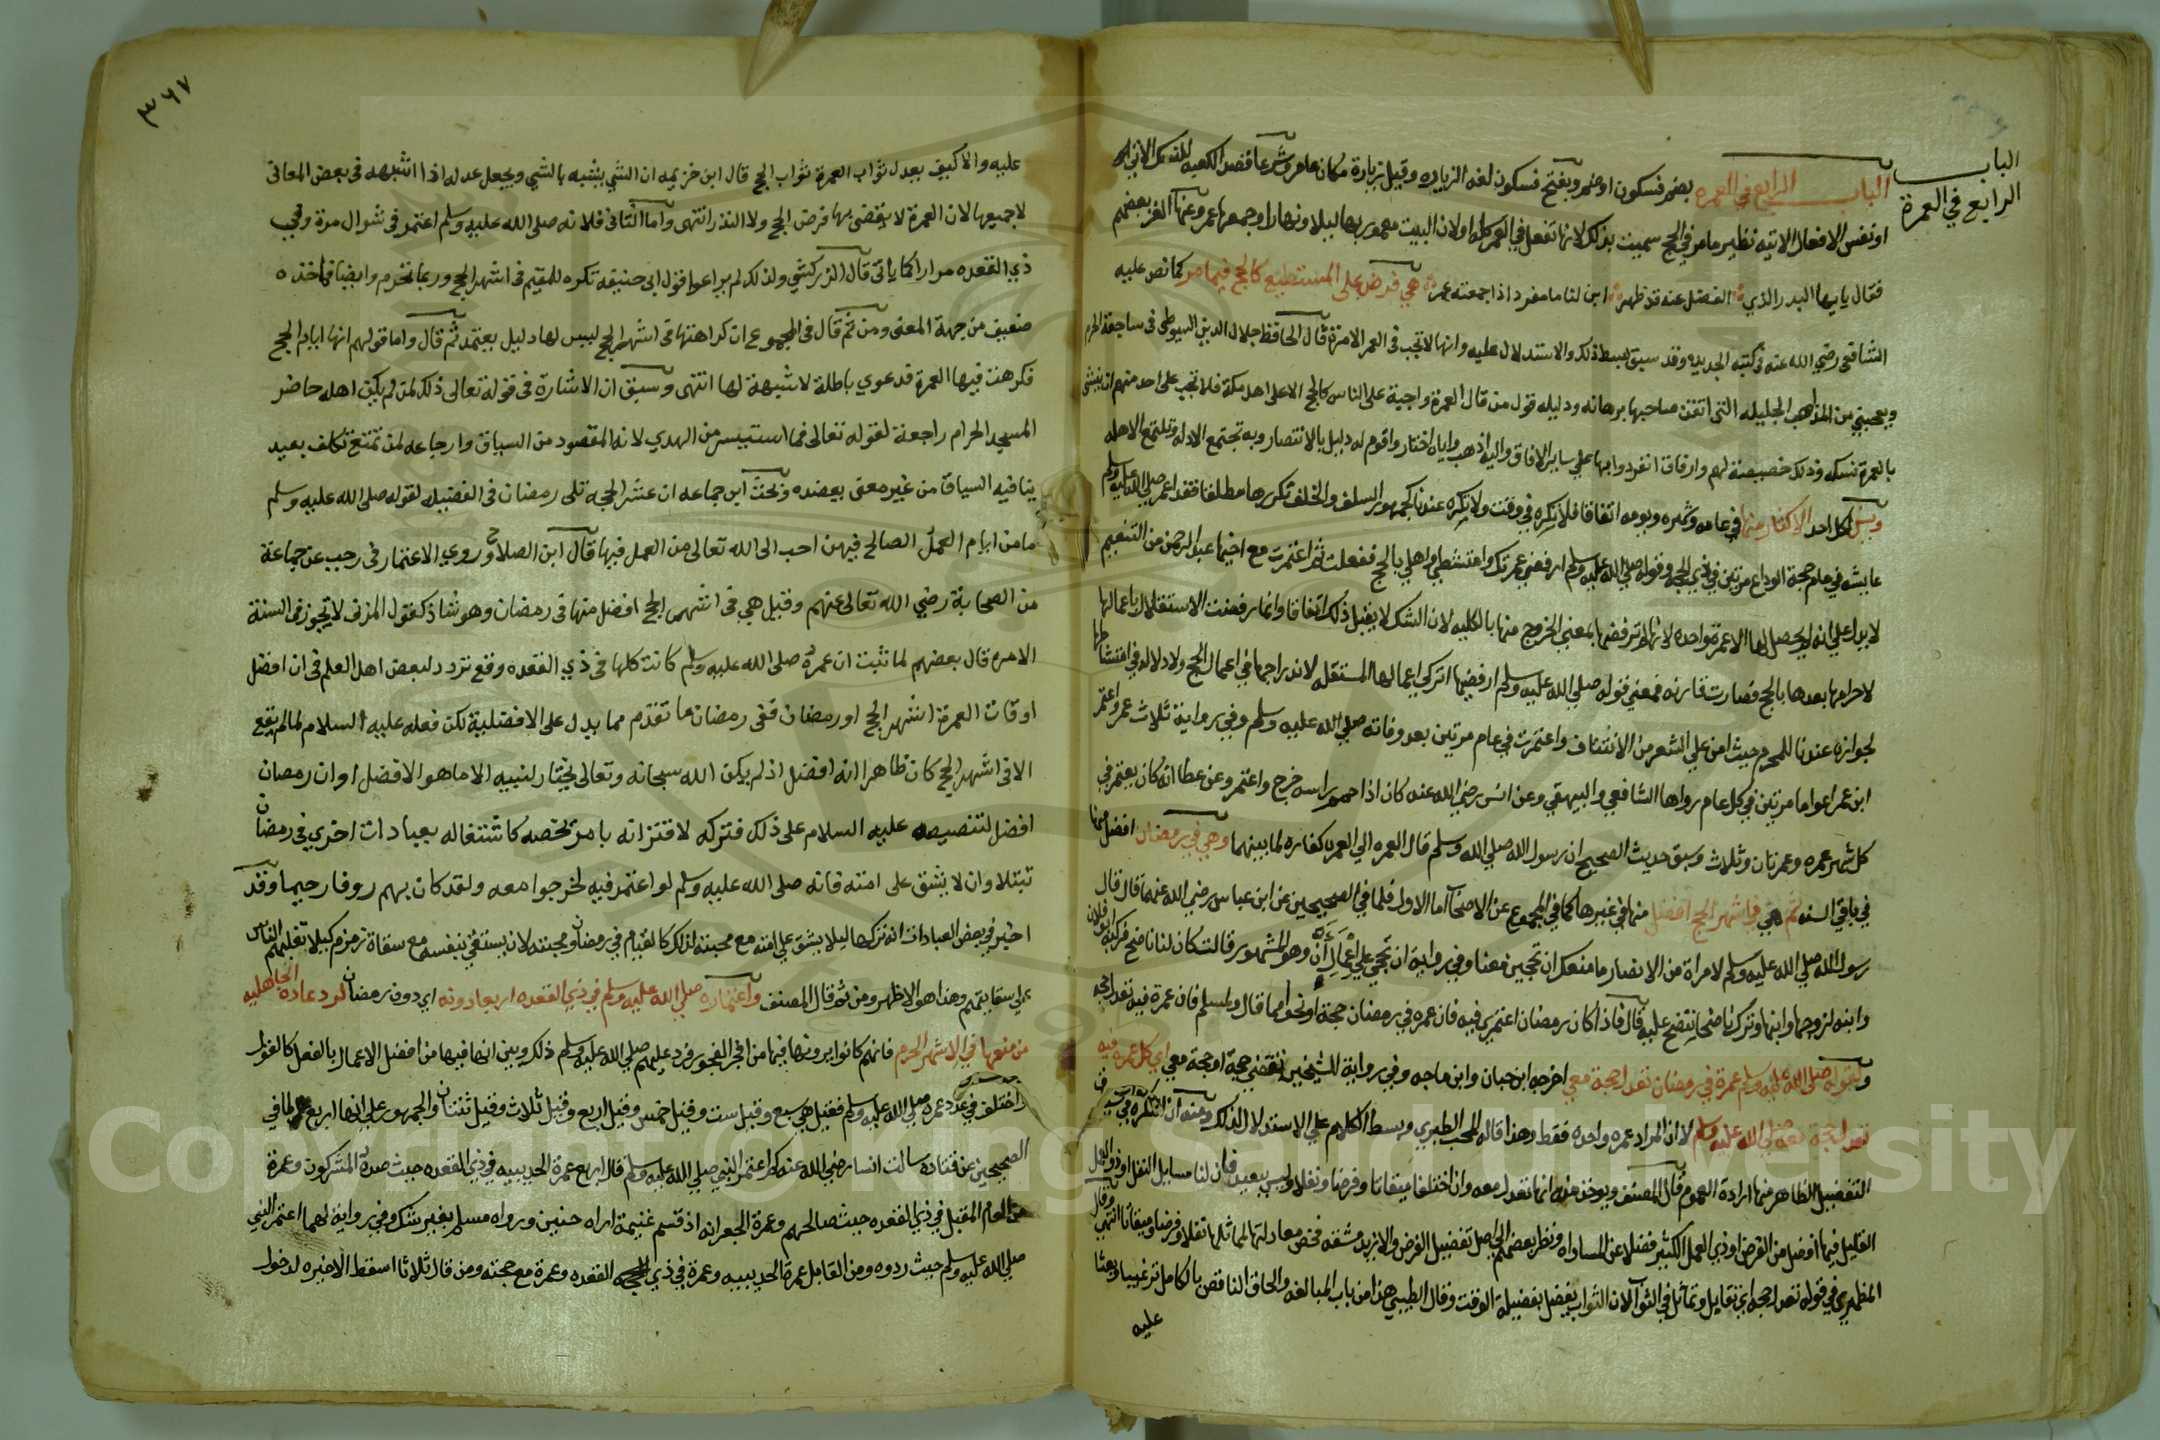 الباب
الرابع في العمرة
الباب الرابع في العمرة بضم فسكون او ضم وبفتح فسكون لغة الزياره وقيل زيارة مكان عامر وشرعا قصد الكعبه للنسك الاتي
او نفس الافعال الاتيه نظير ما مر في الحج سميت بذلك لانها تفعل في العمر كله او لان البيت معمور بها ليلا ونهارا وجمعها عمر وعنها الغز بعضهم
فقال يا ايها البدر الذي الفضل عنه قد ظهر اين لنا ما مفرد اذا جمعته عمر هي فرض على المستطيع كالحج فيما مر كما نص عليه
الشافعي رضي الله عنه في كتبه الجديده وقد سبق بسط ذلك والاستدلال عليه وانها لا تجب في العمر الا مرة قال الحافظ جلال الدين السيوطي في ساجعة الحرم
ويعجبني من المذاهب الجليله التي اتقن صاحبها برهانه ودليله قول من قال العمرة واجبة على الناس كالحج الا على اهل مكة فلا تجب على احد منهم
بالعمرة نسكه وذلك خصيصة لهم وارفاق انفردوا بها علي ساير الافاق واليه اذهب واياه اختار واقوم له دليل بالانتصار وبه تجتمع الادله
ويسن لكل احد الاكثار منها في عامه وشهره ويومه اتفاقا فلا تكره في وقت ولا يكره عندنا كجمهور السلف والخلف تكررها مطلقا فقد اعمر صلي الله عليه وسلم
عايشه في عام حجة الوداع مرتين في ذي الحجه وقوله صلي الله عليه وسلم ارفضي عمرتك وامتشطي واهلي بالحج ففعلت ثم اعتمرت مع اخيها عبد الرحمن من التنعيم
لا يدل علي انه لم يحصل لها الا عمرة واحده لانها لم ترفضها بمعني الخروج منها بالكليه لان النسك لا يقبل ذلك اتفاقا وانما رفضت الاستقلال باعمالها
لاحرامها بعدها بالحج فصارت قارنه فمعني قوله صلي الله عليه وسلم ارفضيها اتركي اعمالها المستقله لاندراجها في اعمال الحج ولا دلاله في امتشاطها
لجوازه عندنا للمحرم حيث امن علي الشعر من الانتتاف واعتمرت في عام مرتين بعد وفاته صلي الله عليه وسلم وفي رواية ثلاث عمر واعتمر
ابن عمر اعواما مرتين في كل عام رواها الشافعي والبيهقي وعن انس رضي الله عنه كان اذا حمم راسه خرج واعتمر وعن عطا انه كان يعتمر في
كل شهر عمره وعمرتان وثلاث وسبق حديث الصحيح ان رسول الله صلي الله وسلم قال العمره الي العمره كفاره لما بينهما وهي في رمضان افضل منها
في باقي السنه ثم هي في اشهر الحج افضل منها في غيرها كما في المجموع عن الاصحاب اما الاول فلما في الصحيحين عن ابن عباس رضي الله عنهما قال قال
رسول الله صلي الله عليه وسلم لامراة من الانصار ما منعك ان تحجين معنا وفي رواية ان تحجي علي اعمال ان وهو المشهور قالت كان لنا ناضح فركبه ابو فلان
وابنه لزوجها وابنها وترك ناضحا ننضح عليه قال فاذا كان رمضان اعتمري فيه فان عمره في رمضان حجة او نحوا مما قال ولمسلم فان عمرة فيه تعدل حجه
ولقوله صلي الله عليه وسلم عمرة في رمضان تعدل حجة معي اخرجه ابن حبان وابن ماجه وفي رواية للشيخين تقضي حجة او حجة معي اي كل عمره فيه
تعدل حجة معه صلي الله عليه وسلم لا ان المراد عمره واحده فقط وهذا قاله المحب الطبري وبسط الكلام علي الاستدلال لذلك ومنه ان النكره في سياق
التفضيل الظاهر منها ارادة العموم قال المصنف ويوخذ منه انها تعدل معه وان اختلفا ميقاتا وفرضا ونفلا وليس ببعيد فان لنا مسايل النفل
القليل فيها افضل من الفرض او ذي العمل الكثير فضلا عن المساواه ونظر بعضهم الي اصل تفضيل الفرض والا زيد مشقه فخص معادلتها لما ثلها نفلا وفرضا وميقاتا انتهي وقال
المظهري في قوله تعدل حجه اي تقابل وتماثل في الثواب لان الثواب يفضل بفضيلة الوقت وقال الطيبي هذا من باب المبالغه والحاق الناقص بالكامل ترغيبا وبعثا
عليه
٣٦٧
عليه والا كيف يعدل ثواب العمرة ثواب الحج قال ابن خزيمه ان الشي يشبه بالشي ويجعل عدله اذا اشبهه في بعض المعاني
لا جميعها لان العمرة لا يقضى بها فرض الحج ولا النذر انتهى واما الثاني فلانه صلى الله عليه وسلم اعتمر في شوال مرة وفي
ذي القعده مرارا كما ياتي قال الزركشي ولذلك لم يراعوا قول ابي حنيفة تكره للمقيم في اشهر الحج وربما تحرم وايضا فماخذه
ضعيف من جهة المعنى ومن ثم قال في المجموع ان كراهتها في اشهر الحج ليس لها دليل يعتمد ثم قال واما قولهم انها ايام الحج
فكرهت فيها العمرة فدعوي باطلة لا شبهة لها انتهى وسبق ان الاشارة في قوله تعالى ذلك لمن لم يكن اهله حاضر
المسجد الحرام راجعة لقوله تعالى فما استيسر من الهدي لانه المقصود من السياق وارجاعه لمن تمتع تكلف بعيد
ينافيه السياق من غير معنى يعضده وبحث ابن جماعه ان عشر الحجه تلى رمضان في الفضيله لقوله صلى الله عليه وسلم
ما من ايام العمل الصالح فيهن احب الى الله تعالى من العمل فيها قال ابن الصلاح وروي الاعتمار في رجب عن جماعة
من الصحابة رضي الله تعالى عنهم وقيل هي في اشهر الحج افضل منها في رمضان وهو شاذ كقول المزني لا تجوز في السنة
الا مره قال بعضهم لما ثبت ان عمره صلى الله عليه وسلم كانت كلها في ذي القعده وقع تردد لبعض اهل العلم في ان افضل
اوقات العمرة اشهر الحج او رمضان ففي رمضان ما تقدم مما يدل على الافضلية لكن فعله عليه السلام لما لم يقع
الا في اشهر الحج كان ظاهرا انه افضل اذ لم يكن الله سبحانه وتعالى يختار لنبيه الا ما هو الافضل او ان رمضان
افضل لتنصيصه عليه السلام على ذلك فتركه لاقترانه بامر يخصه كاشتغاله بعبادات اخري في رمضان
تبتلا وان لا يشق على امته فانه صلى الله عليه وسلم لو اعتمر فيه لخرجوا معه ولقد كان بهم روفا رحيما وقد
اخبر في بعض العبادات انه تركها ليلا يشق علي امته مع محبته لذلك كالقيام في رمضان ومحبته لان يستقي بنفسه مع سقاة زمزم كيلا تغلبهم الناس
علي سقايتهم وهذا هو الاظهر ومن ثم قال المصنف واعتماره صلي الله عليه وسلم في ذي القعده اربعا دونه اي دون رمضان لرد عادة الجاهليه
من منعها في الاشهر الحرم فانهم كانوا يرونها فيها من افجر الفجور فرد عليهم صلي الله عليه وسلم ذلك وبين انها فيها من افضل الاعمال بالفعل كالقول
واختلف في عدد عمره صلي الله عليه وسلم فقيل هي سبع وقيل ست وقيل خمس وقيل اربع وقيل ثلاث وقيل ثنتان والجمهور علي انها اربع لما في
الصحيحين عن قتاده سالت انسا رضي الله عنه كم اعتمر النبي صلي الله عليه وسلم قال اربع عمرة الحديبيه في ذي القعده حيث صده المشركون وعمرة
من العام المقبل في ذي القعده حيث صالحهم وعمرة الجعرانه اذ قسم غنيمة اراه حنين ورواه مسلم بغير شك وفي رواية لهما اعتمر النبي
صلي الله عليه وسلم حيث ردوه ومن القابل عمرة الحديبيه وعمرة في ذي القعده وعمرة مع حجته ومن قال ثلاثا اسقط الاخيره لدخول